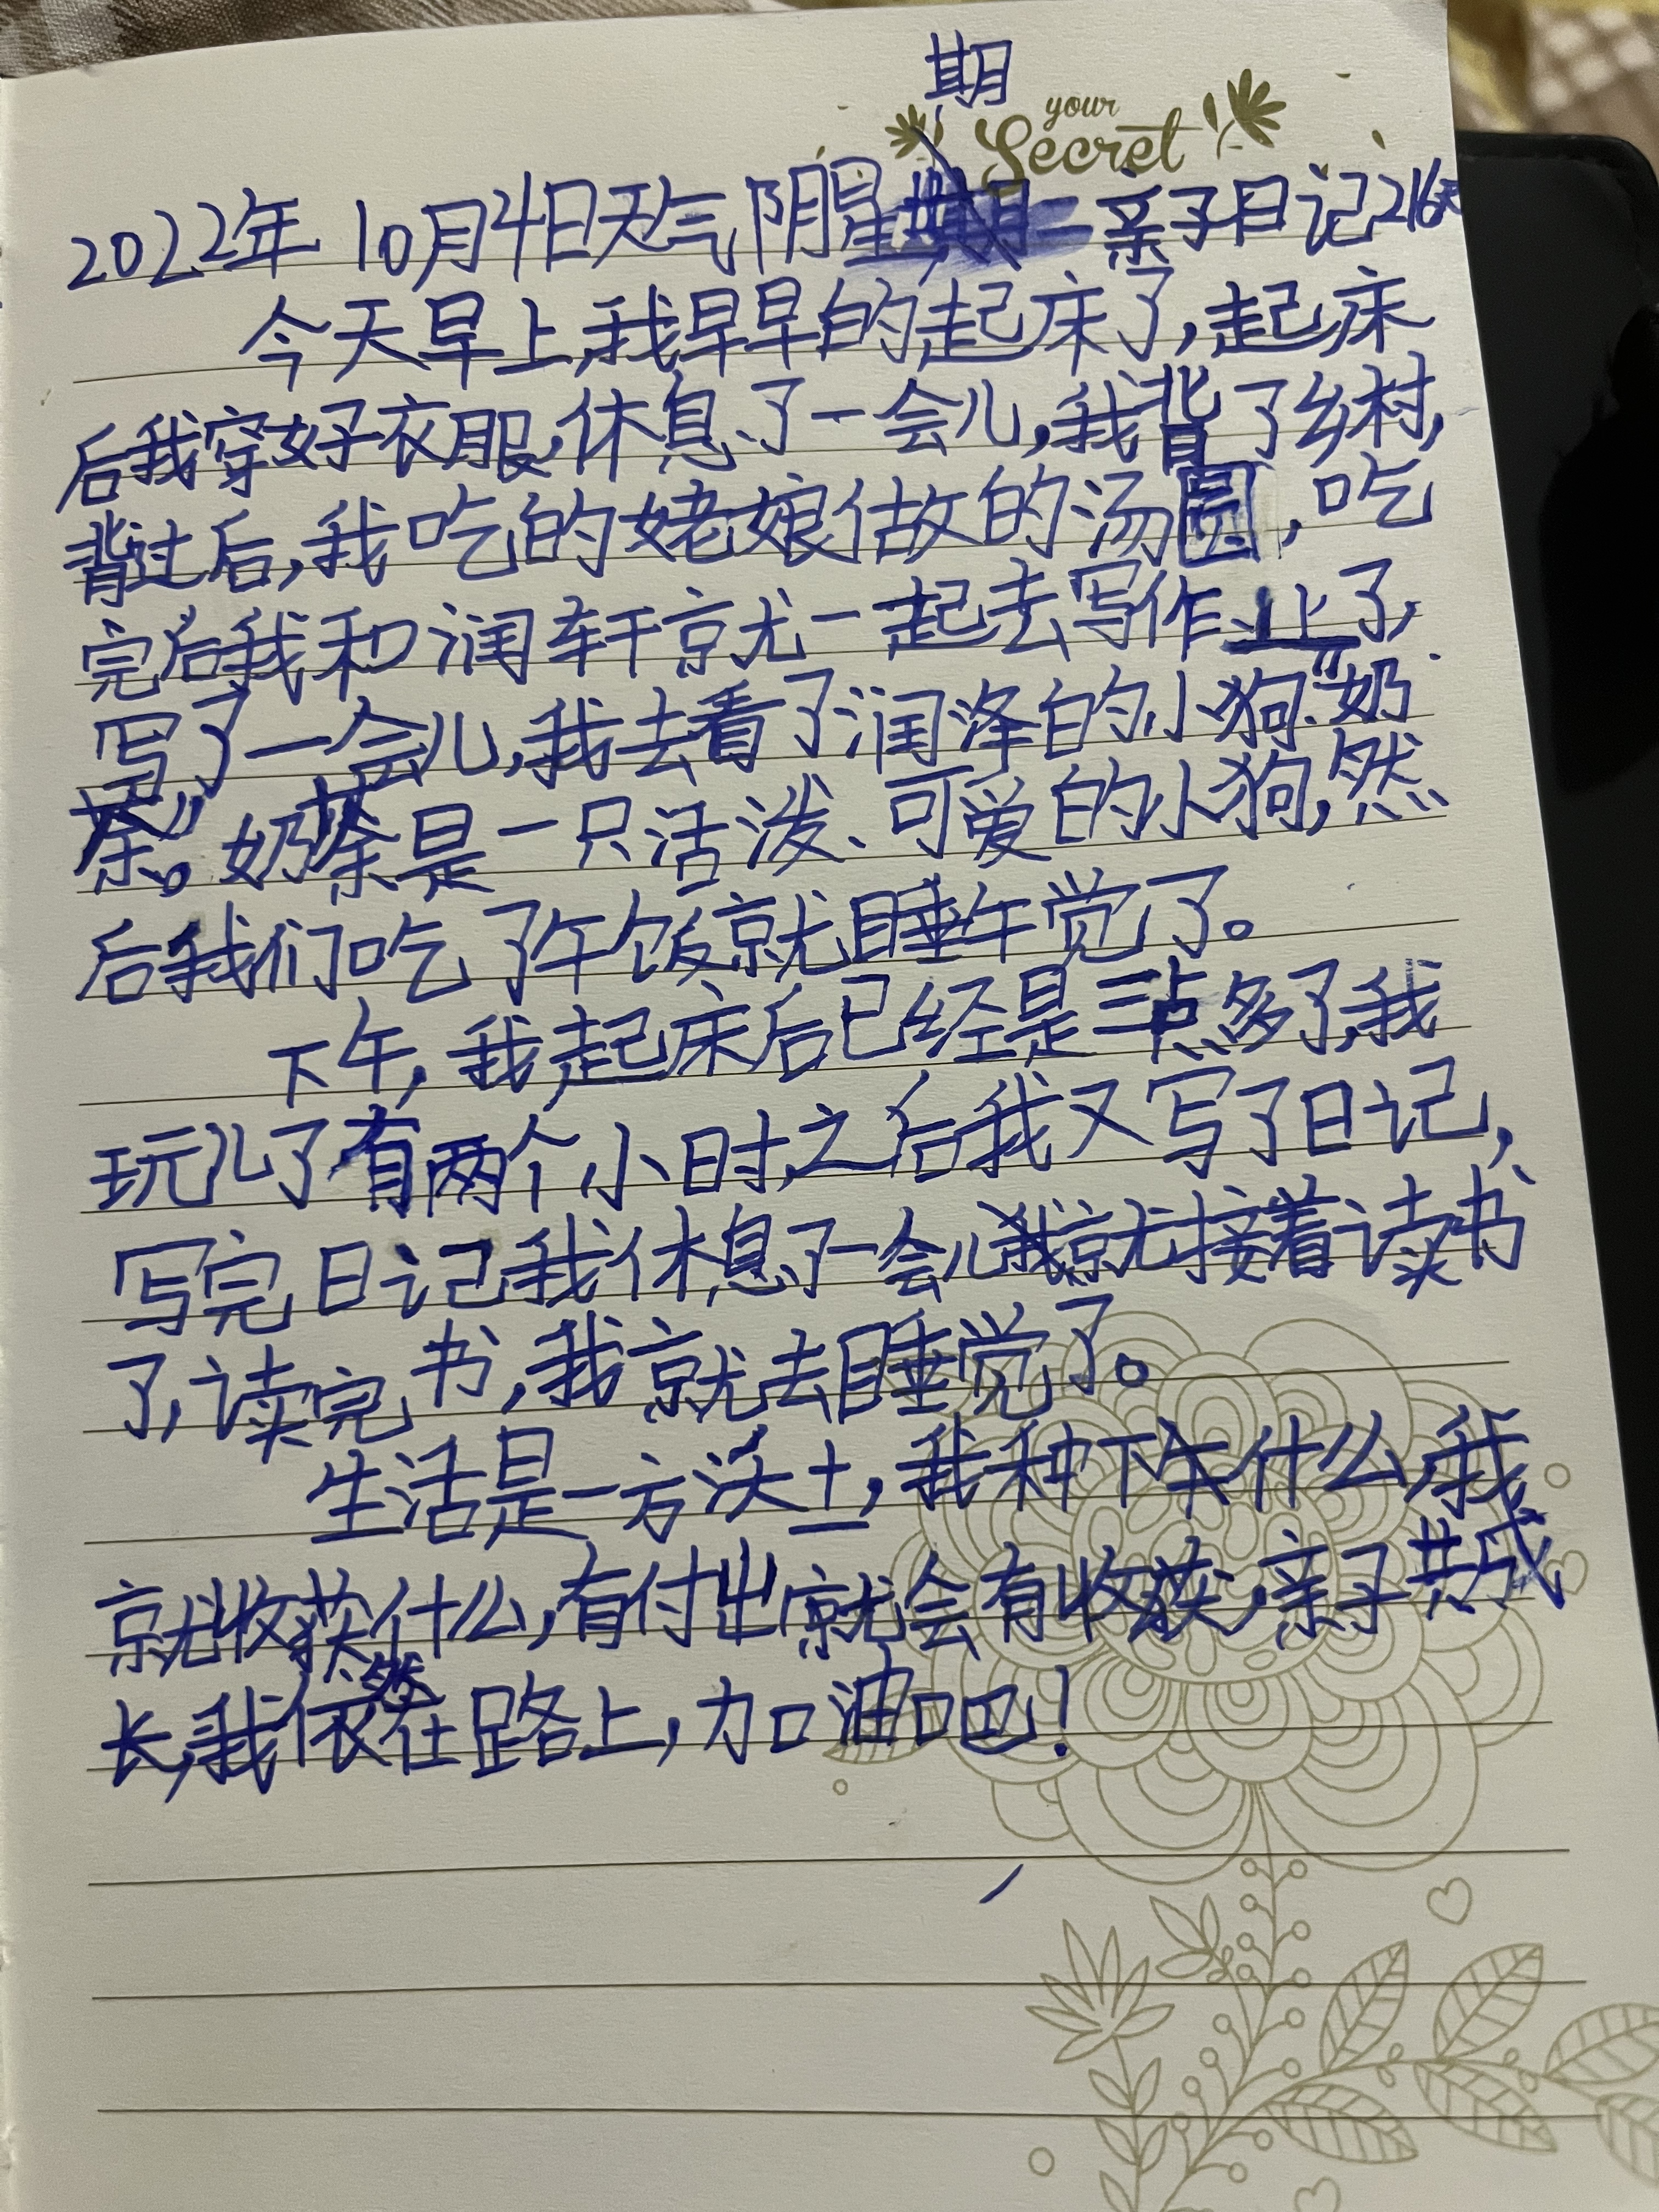 期
your
Secret
2022年10月4日天气阴星二亲子日记216天
今天早上,我早早的起床了,起床
后我穿好衣服,休息了一会儿,我背了乡村,
背过后,我吃的姥娘做的汤圆,吃
完后我和润轩就一起去写作业了,
写了一会儿,我去看了润泽的小狗“奶
茶”。奶茶是一只活泼、可爱的小狗,然
后我们吃了午饭就睡午觉了。
下午,我起床后已经是三点多了,我
玩儿了有两个小时,之后我又写了日记,
写完日记我休息了一会儿我就接着读书
了,读完书,我就去睡觉了。
生活是一方沃土,我种下什么,我
就收获什么,有付出就会有收获,亲子共成
长,我依然在路上,加油吧!